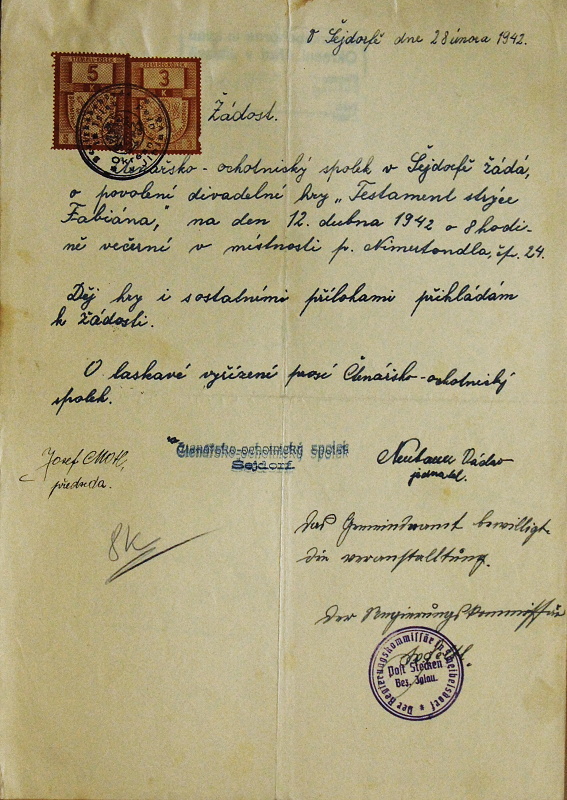 V Šejdorfě dne 28 února 1942.
5 K
3 K
Žádost.
Čtenářsko-ochotnický spolek v Šejdorfě žádá,
o povolení divadelní hry „Testament strýce
Fabiána," na den 12. dubna 1942 o 8 hodi-
ně večerní v místnosti p. Nimertondla, čp. 24.
Děj hry i s ostatními přílohami přikládám
k žádosti.
O laskavé vyřízení prosí Čtenářsko-ochotnický
spolek.
Josef
předseda.
Čtenářsko-ochotnický spolek
Šejdorf.
Neubauer Václav
jednatel.
8K
Das Gemeindeamt bewilligt
die Veranstalltung.
Der Regierungskommissär
Der Regierungskommissär in
Post Stecken
Bez. Iglau.